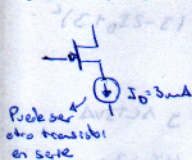 I_D=3mA
Puede ser
otro transistor
en serie